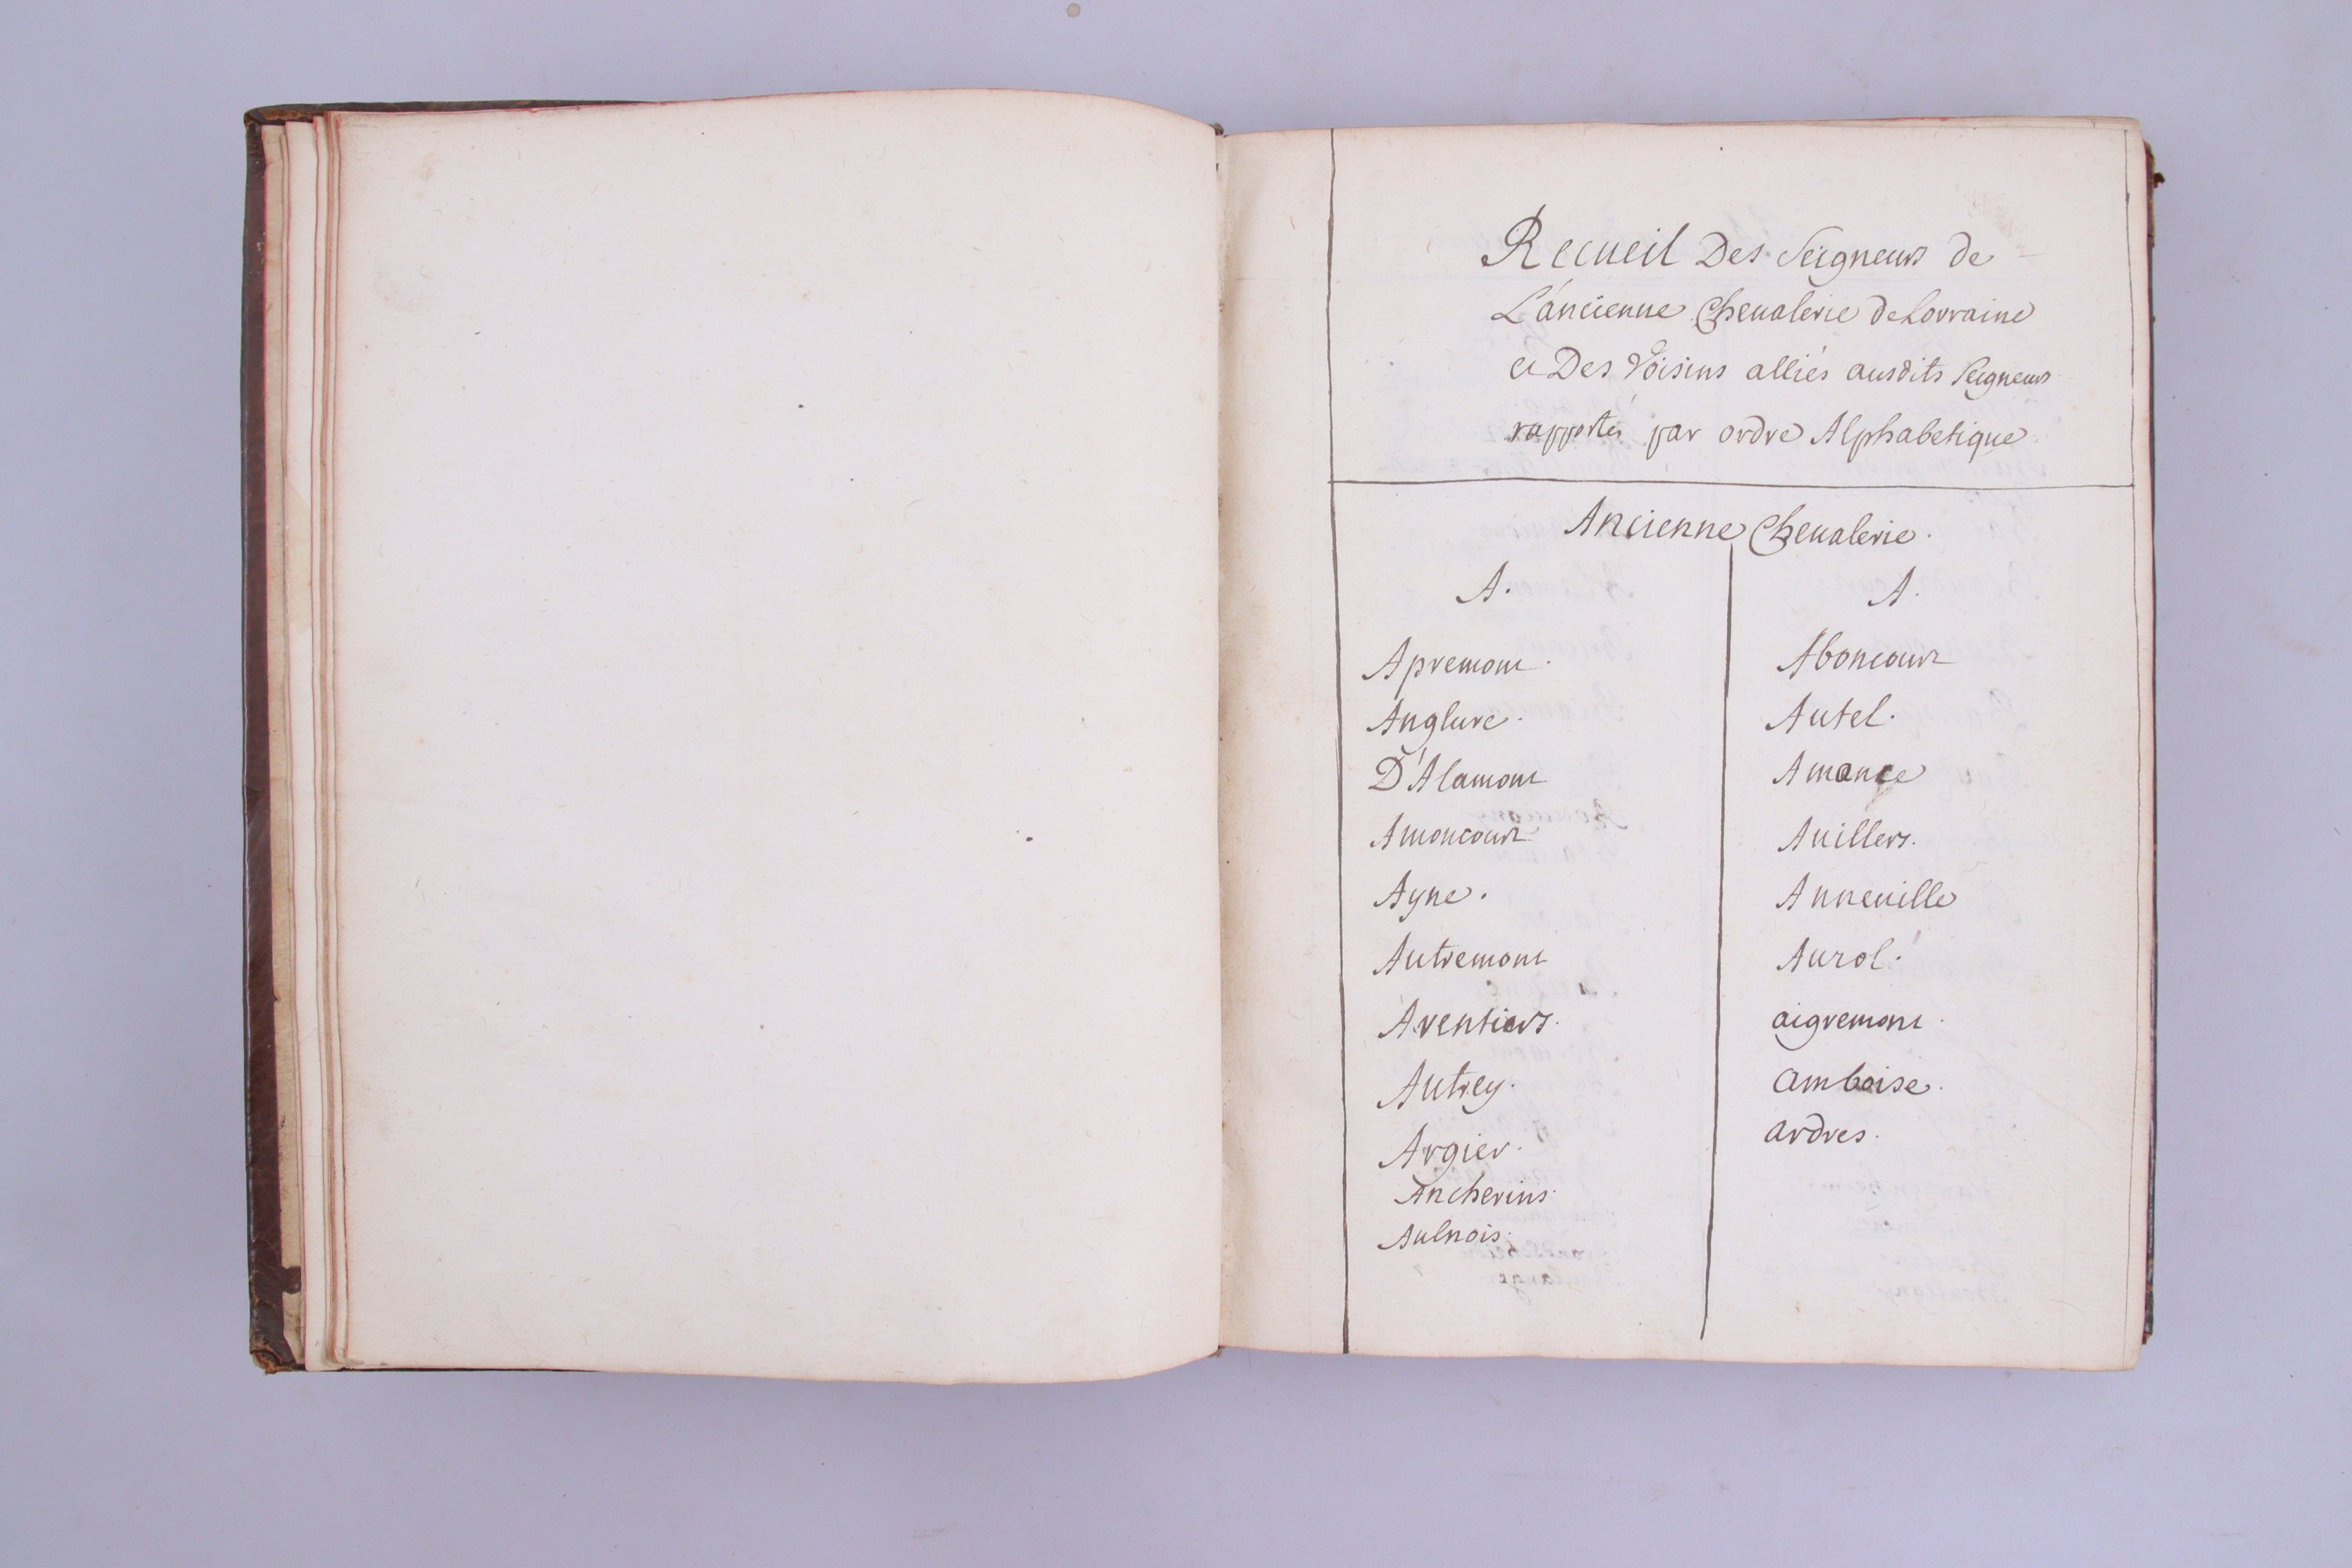 Recueil Des Seigneurs de
L'ancienne Chevalerie de Lorraine
et Des Voisins alliés ausdits Seigneurs
rapportés par ordre Alphabetique
Ancienne Chevalerie.
A.
Apremont.
Anglure.
D'Alamont
Amoncourt
Ayne.
Autremont
Aventiers.
Autrey.
Argier.
Ancherins.
Aulnois.
A.
Aboncourt
Autel.
Amance
Auillers.
Anneuille
Aurol.
aigremont.
amboise.
ardres.